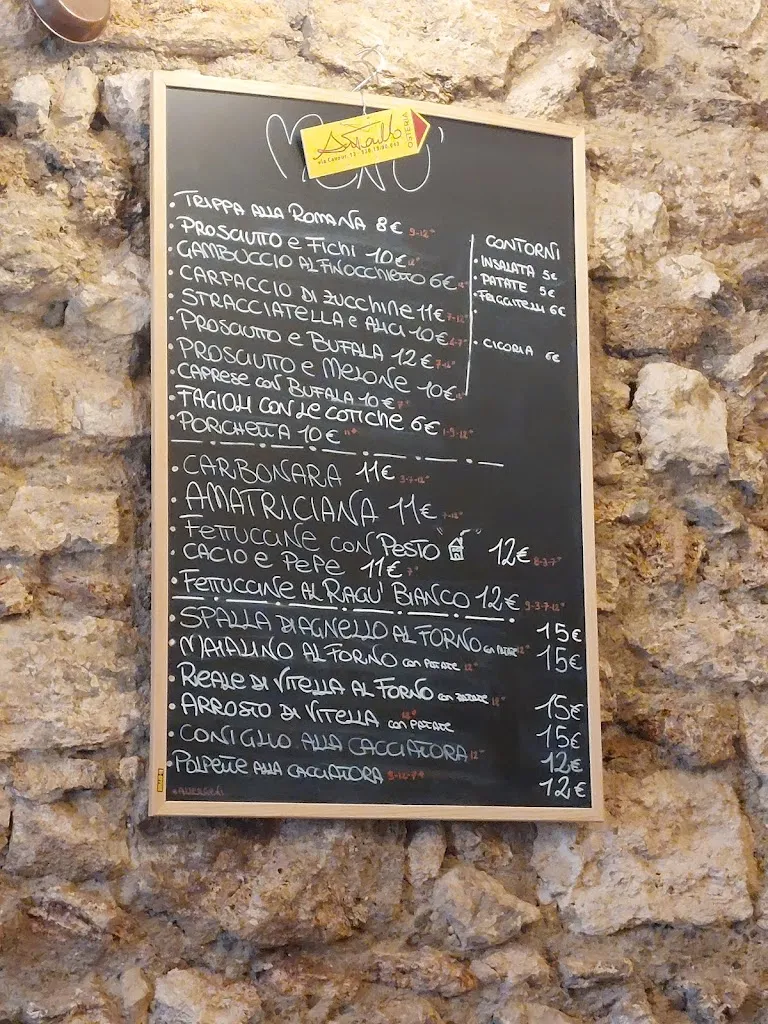 MENU'
OSTERIA
TRIPPA ALLA ROMANA 8€ 9-12*
PROSCIUTTO e FICHI 10€ 12*
GAMBUCCIO AL FINOCCHIETTO 6€ 12*
CARPACCIO DI ZUCCHINE 11€ 7-12*
STRACCIATELLA e ALICI 10€ 4-7*
PROSCIUTTO e BUFALA 12€ 7-12*
PROSCIUTTO e MELONE 10€ 12*
CAPRESE CON BUFALA 10€ 7*
FAGIOLI CON LE COTICHE 6€ 1-9-12*
PORCHETTA 10€
CONTORNI
INSALATA 5€
PATATE 5€
FRIGGITELLI 6€
CICORIA 6€
CARBONARA 11€ 3-7-12*
AMATRICIANA 11€ 7-12*
FETTUCCINE CON PESTO " " 12€ 8-3-7*
CACIO e PEPE 11€ 7*
FETTUCCINE AL RAGU' BIANCO 12€ 9-3-7-12*
SPALLA DI AGNELLO AL FORNO con PATATE 12* 15€
MAIALINO AL FORNO con PATATE 12* 15€
REALE DI VITELLA AL FORNO con PATATE 12* 15€
ARROSTO DI VITELLA con PATATE 12* 15€
CONIGLIO ALLA CACCIATORA 12* 12€
POLPETTE ALLA CACCIATORA 9-12-7* 12€
*ALLERGENI